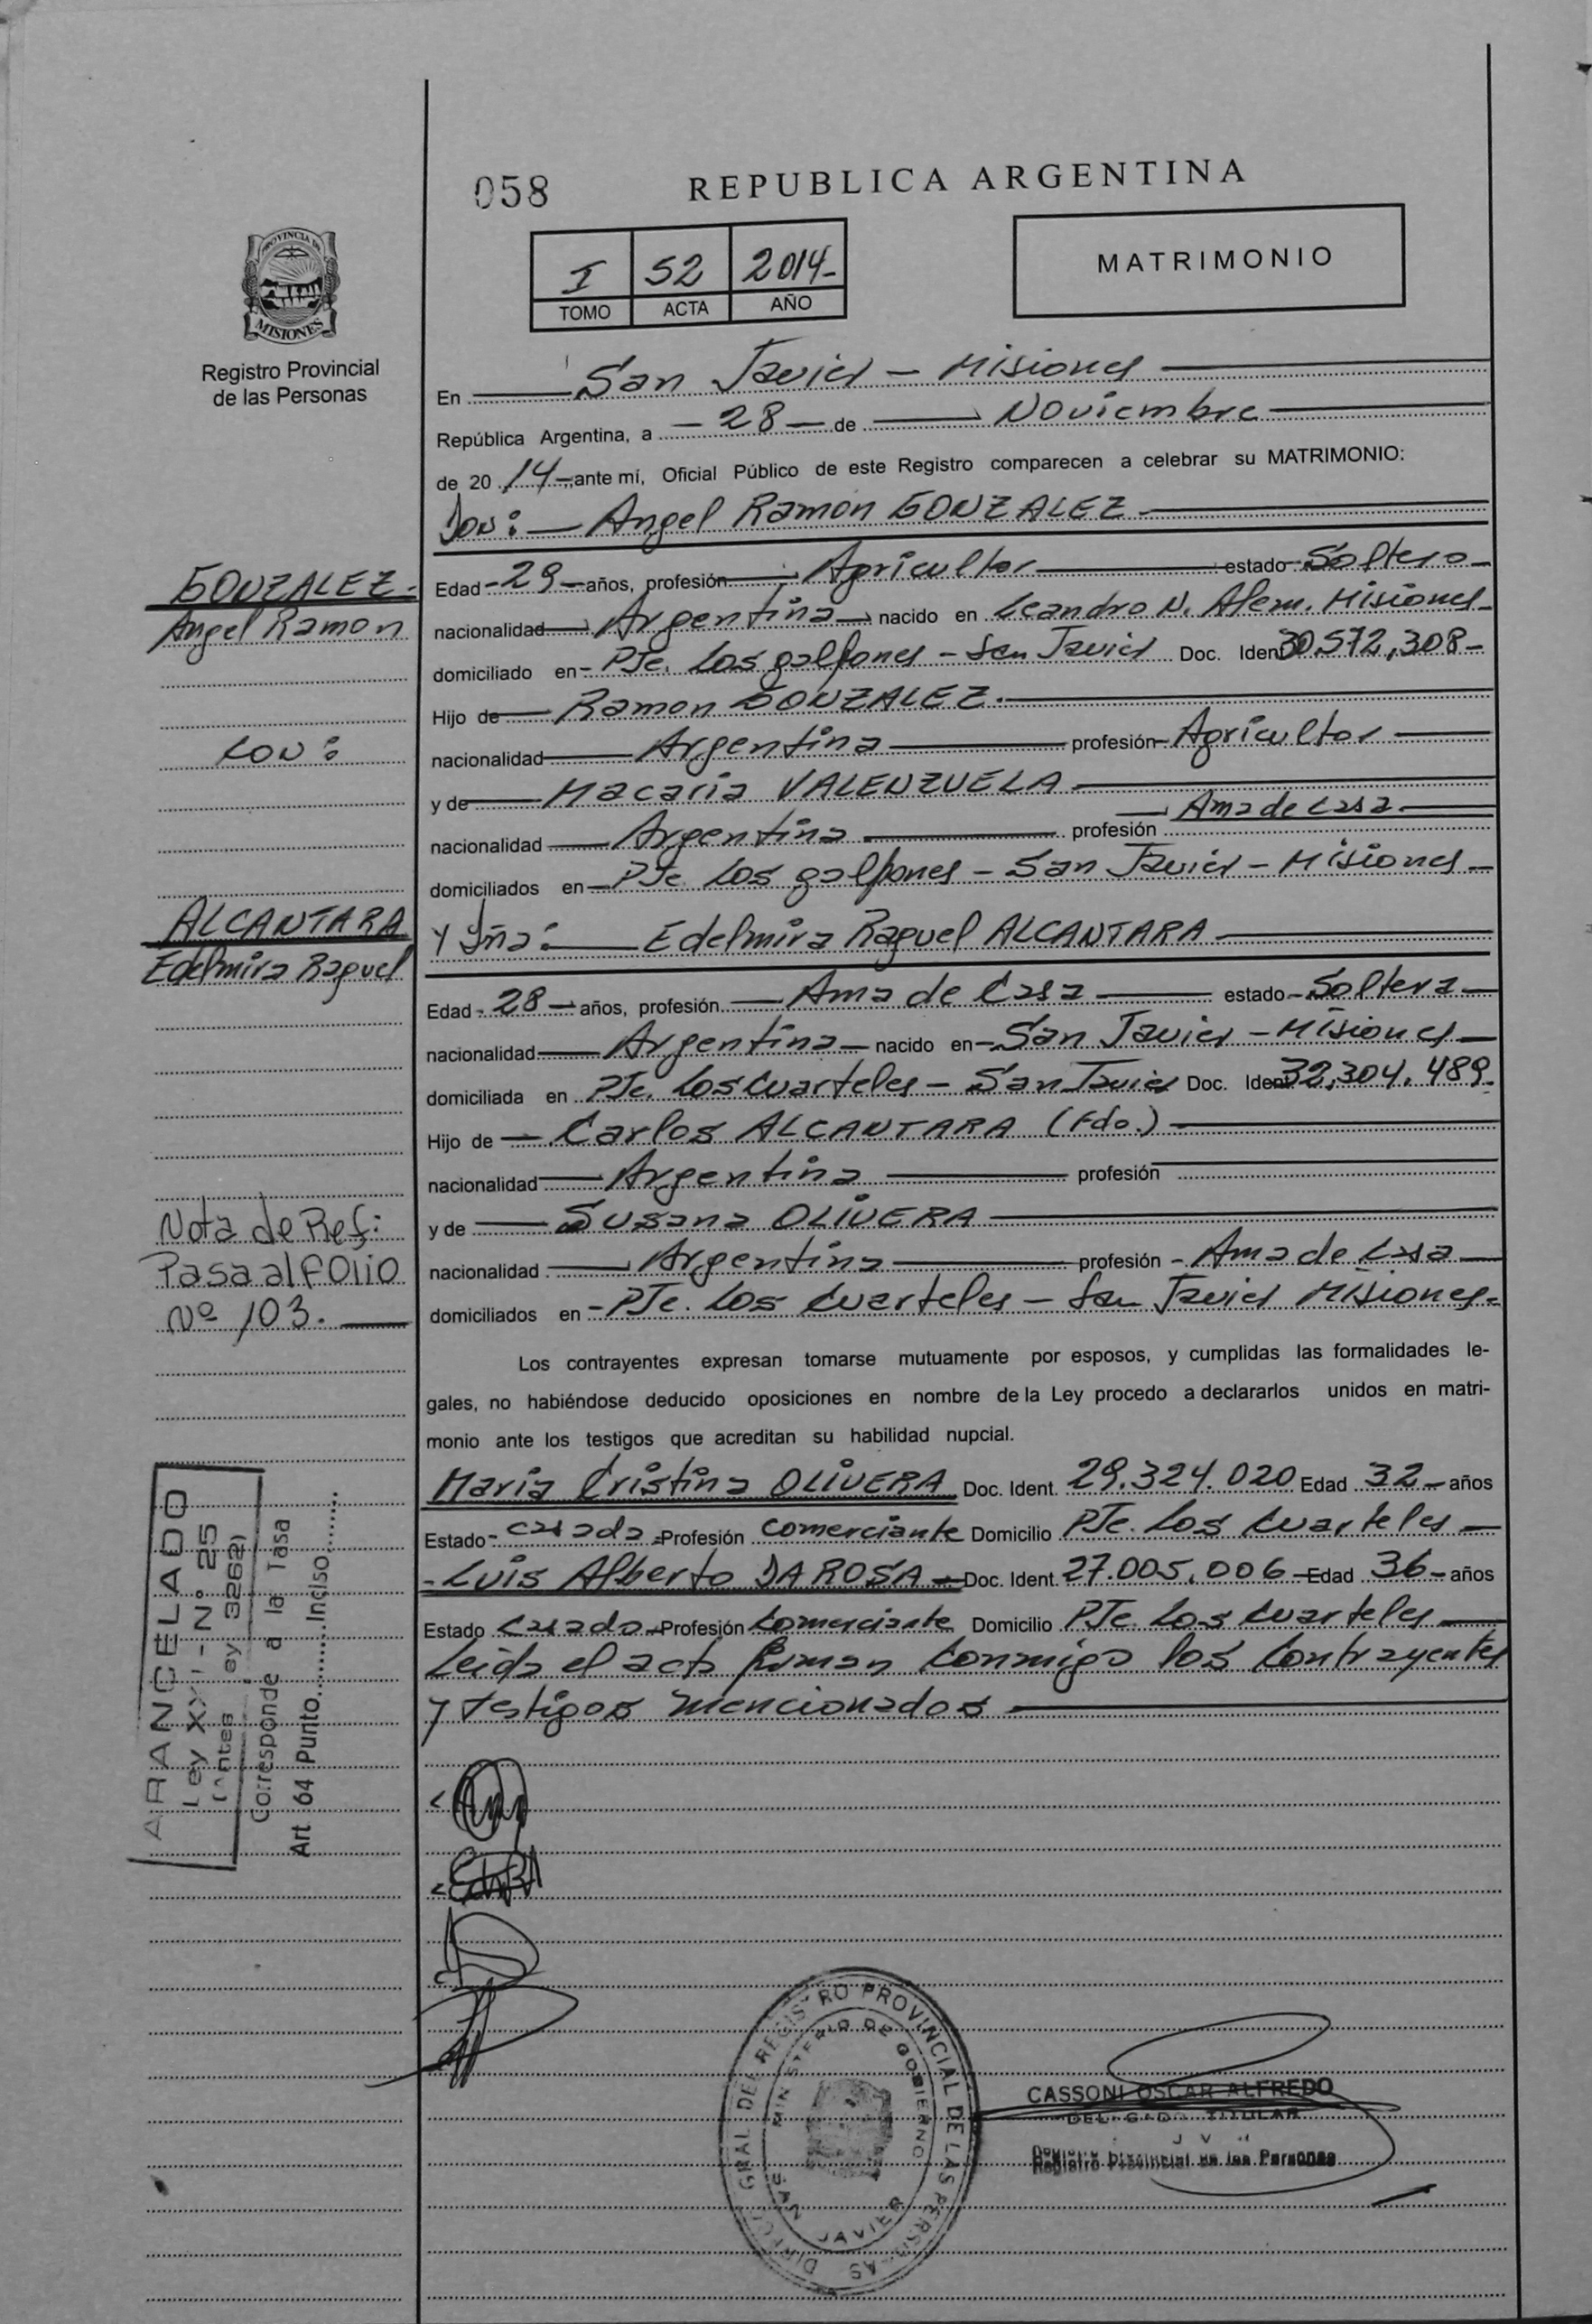 058
REPUBLICA ARGENTINA
I 52 2014-
TOMO ACTA AÑO
MATRIMONIO
PROVINCIA DE
MISIONES
Registro Provincial
de las Personas
En San Javier - Misiones
República Argentina, a - 28 - de Noviembre
de 20 14 - ante mí, Oficial Público de este Registro comparecen a celebrar su MATRIMONIO:
Don: Angel Ramon GONZALEZ
GONZALEZ.
Angel Ramon
CON:
ALCANTARA
Edelmira Raquel
Edad - 29 - años, profesión Agricultor estado Soltero
nacionalidad Argentina nacido en Leandro N. Alem. Misiones
domiciliado en - PJe. Los galpones - San Javier Doc. Ident 30.572,308 -
Hijo de Ramon GONZALEZ.
nacionalidad Argentina profesión Agricultor
y de Macaria VALENZUELA
nacionalidad Argentina profesión Ama de Casa
domiciliados en - PJe Los galpones - San Javier - Misiones -
Y Sña: Edelmira Raquel ALCANTARA
Edad - 28 - años, profesión Ama de Casa estado - Soltera
nacionalidad Argentina - nacido en - San Javier - Misiones
domiciliada en PJe. Los Cuarteles - San Javier Doc. Ident 32,304.489.
Hijo de - Carlos ALCANTARA (Fdo.)
nacionalidad Argentina profesión
y de Susana OLIVERA
nacionalidad Argentina profesión - Ama de Casa
domiciliados en - PJe. Los Cuarteles - San Javier Misiones -
Nota de Ref:
Pasa al FOLIO
Nº 103.
Los contrayentes expresan tomarse mutuamente por esposos, y cumplidas las formalidades le-
gales, no habiéndose deducido oposiciones en nombre de la Ley procedo a declararlos unidos en matri-
monio ante los testigos que acreditan su habilidad nupcial.
Maria Cristina OLIVERA Doc. Ident. 29.324.020 Edad 32 - años
Estado - casada - Profesión comerciante Domicilio PJe. Los Cuarteles -
- Luis Alberto DA ROSA - Doc. Ident. 27.005.006 - Edad 36 - años
Estado Casado - Profesión Comerciante Domicilio PJe Los Cuarteles
Leida el acta firman conmigo los Contrayentes
y testigos mencionados
ARANCELADO
Ley XXI - Nº 25
(Antes Ley 3262)
Corresponde a la Tasa
Art 64 Punto.........Inciso.......
DIRECC GRAL DEL REGISTRO PROVINCIAL DE LAS PERSONAS
MINISTERIO DE GOBIERNO
SAN JAVIER
CASSONI OSCAR ALFREDO
DELEGADO TITULAR
Registro Provincial de las Personas